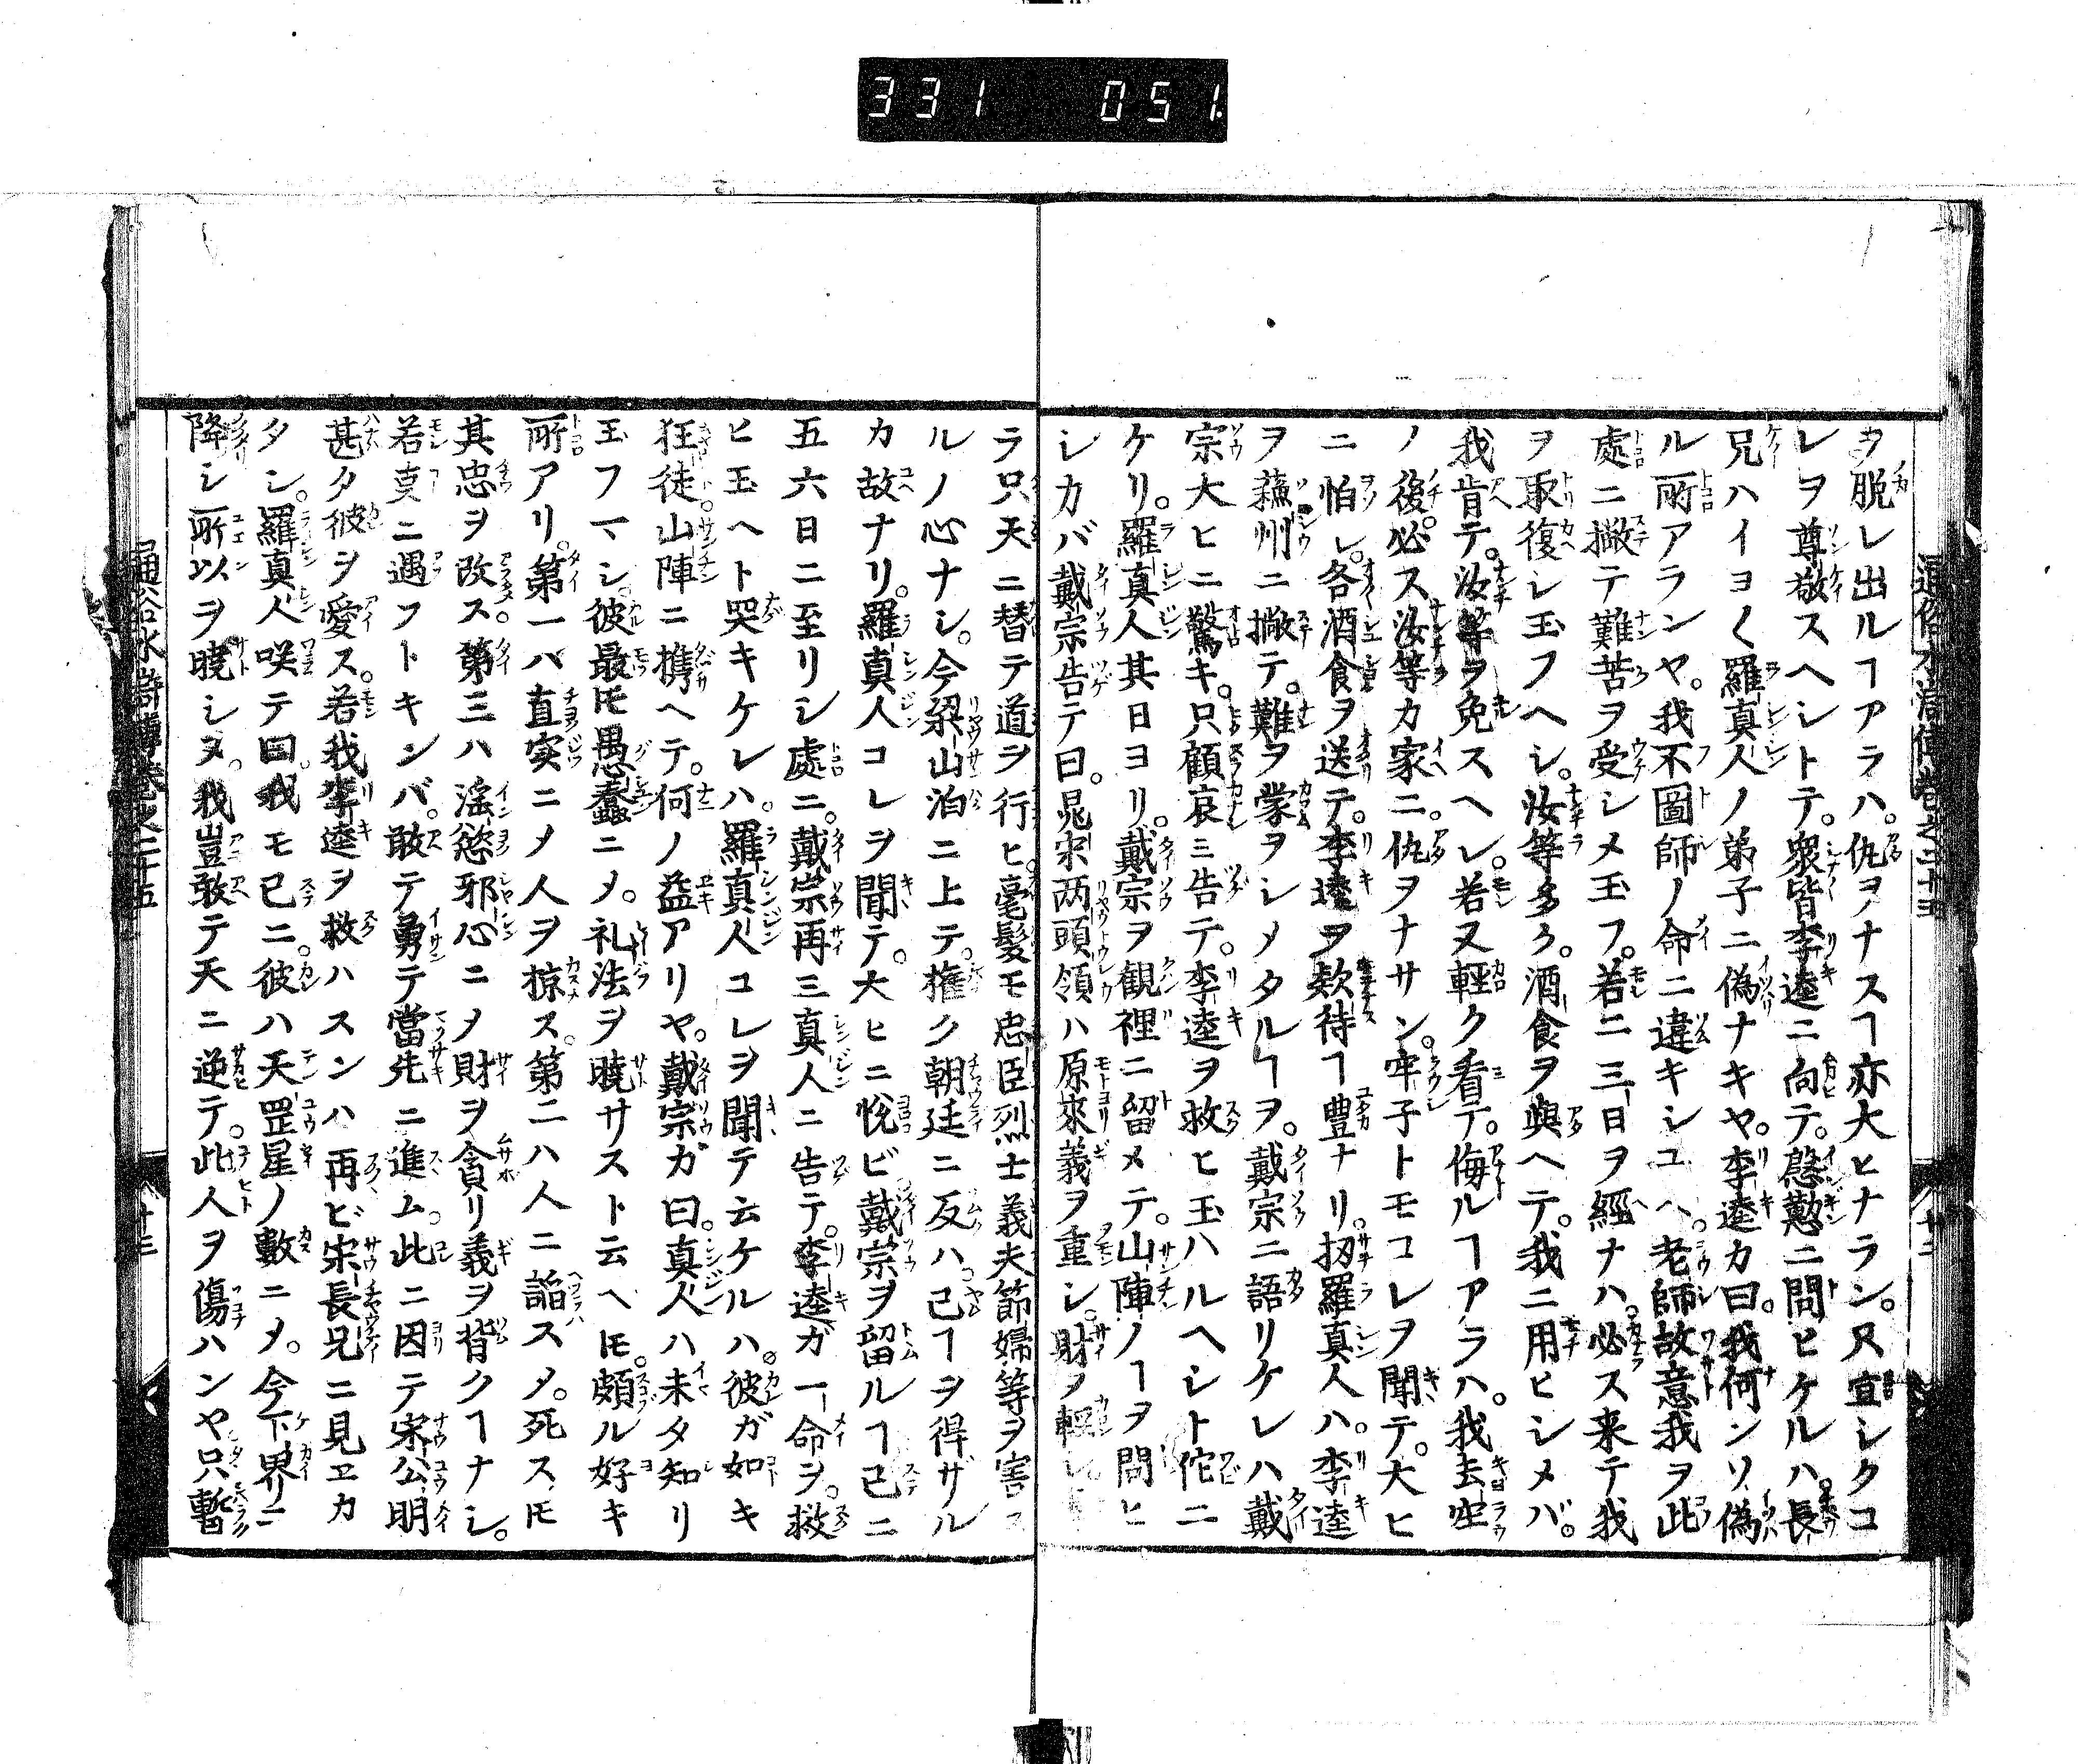 331 051.
通俗水滸傳卷之二十五
十二
ヲ脱レ出ルヿアラハ。仇ヲナスヿ亦大ヒナラン。只宜シクコ
レヲ尊敬スヘシトテ。衆皆李逵ニ向テ。慇懃ニ問ヒケルハ。長
兄ハイヨ〱羅真人ノ弟子ニ偽ナキヤ。李逵カ曰。我何ンソ偽
ル所アランヤ。我不圖師ノ命ニ違キシユヘ。老師故意我ヲ此
處ニ撇テ難苦ヲ受シメ玉フ。若二三日ヲ經ナハ。必ス来テ我
ヲ取復シ玉フヘシ。汝等多ク。酒食ヲ與ヘテ。我ニ用ヒシメバ。
我肯テ。汝等ヲ免スヘシ。若又輕ク看テ。侮ルヿアラハ。我去牢
ノ後。必ス汝等カ家ニ。仇ヲナサン。牢子トモコレヲ聞テ。大ヒ
ニ怕レ。各酒食ヲ送テ。李逵ヲ欵待ヿ豊ナリ。扨羅真人ハ。李逵
ヲ蘓州ニ撇テ。難ヲ蒙ヲシメタルヿヲ。戴宗ニ語リケレハ戴
宗大ヒニ驚キ。只顧哀ミ告テ。李逵ヲ救ヒ玉ハルヘシト佗ニ
ケリ。羅真人其日ヨリ。戴宗ヲ観裡ニ留メテ。山陣ノヿヲ問ヒ
シカバ戴宗告テ曰。晁宋两頭領ハ原來義ヲ重シ。財ヲ輕シ
ラ只天ニ替テ道ヲ行ヒ。毫髮モ忠臣烈士義夫節婦等ヲ害ス
ルノ心ナシ。今梁山泊ニ上テ。権ク朝廷ニ反ハ已ヿヲ得ザル
カ故ナリ。羅真人コレヲ聞テ。大ヒニ悅ビ戴宗ヲ留ルヿ已ニ
五六日ニ至リシ處ニ。戴宗再三真人ニ告テ。李逵ガ一命ヲ。救
ヒ玉ヘト哭キケレハ。羅真人コレヲ聞テ云ケルハ。彼ガ如キ
狂徒。山陣ニ携ヘテ。何ノ益アリヤ。戴宗ガ曰。真人ハ未タ知リ
玉フマシ。彼最𪜈愚蠢ニメ。礼法ヲ曉サスト云ヘ𪜈。頗ル好キ
所アリ。第一ハ直実ニメ人ヲ掠ス。第二ハ人ニ謟スメ。死ス𪜈
其忠ヲ改ス。第三ハ淫慾邪心ニメ財ヲ貪リ義ヲ背クヿナシ。
若㕝ニ遇フトキンバ。敢テ勇テ當先ニ進ム。此ニ因テ宋公明
甚タ彼ヲ愛ス。若我李逵ヲ救ハスンハ再ビ宋長兄ニ見ヱカ
タシ。羅真人咲テ曰。我モ已ニ。彼ハ天罡星ノ數ニメ。今下界ニ
降シ所以ヲ曉シヌ。我豈敢テ天ニ逆テ。此人ヲ傷ハンヤ只暫
通俗水滸傳卷之二十五
十三